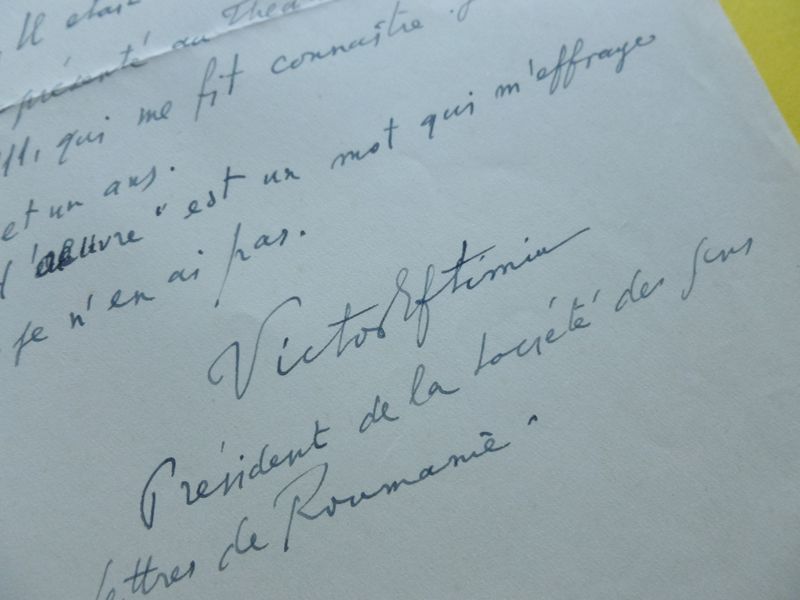 Il était
présenté au Théâ
11, qui me fit connaître
et un ans.
d'œuvre" est un mot qui m'effraye
je n'en ai pas.
Victor Eftimiu
Président de la Société des gens
lettres de Roumanie.